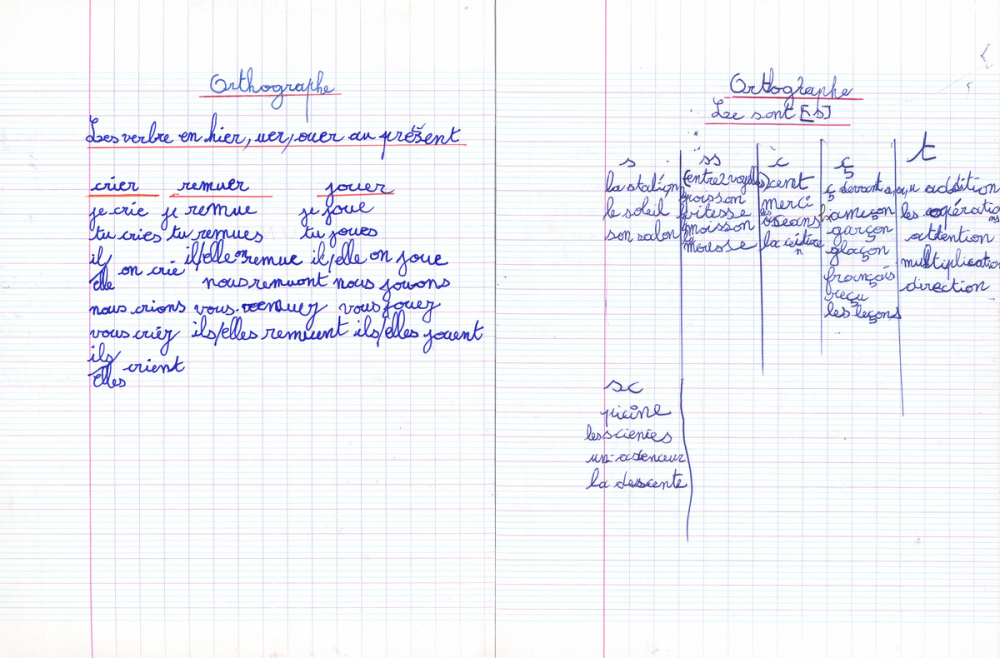 Orthographe
Les verbe en hier, uer, ouer au présent
crier remuer jouer
je crie je remue je joue
tu cries tu remues tu joues
il/elle on crie il/elle remue il/elle on joue
nous remuont nous jouons
nous crions vous remuez vous jouez
vous criez ils/elles remuent ils/elles jouent
ils/elles crient
Orthographe
Lee sont [s]
s
la station
le soleil
son salon
ss
(entre 2 voyelles)
poisson
vitesse
moisson
mousse
c
cent
merci
océans
la ceinture
ç
ç devant a o u
hameçon
garçon
glaçon
français
reçu
les leçons
t
addition
les opérations
attention
multiplication
direction
sc
picine
les sciences
un
la descente